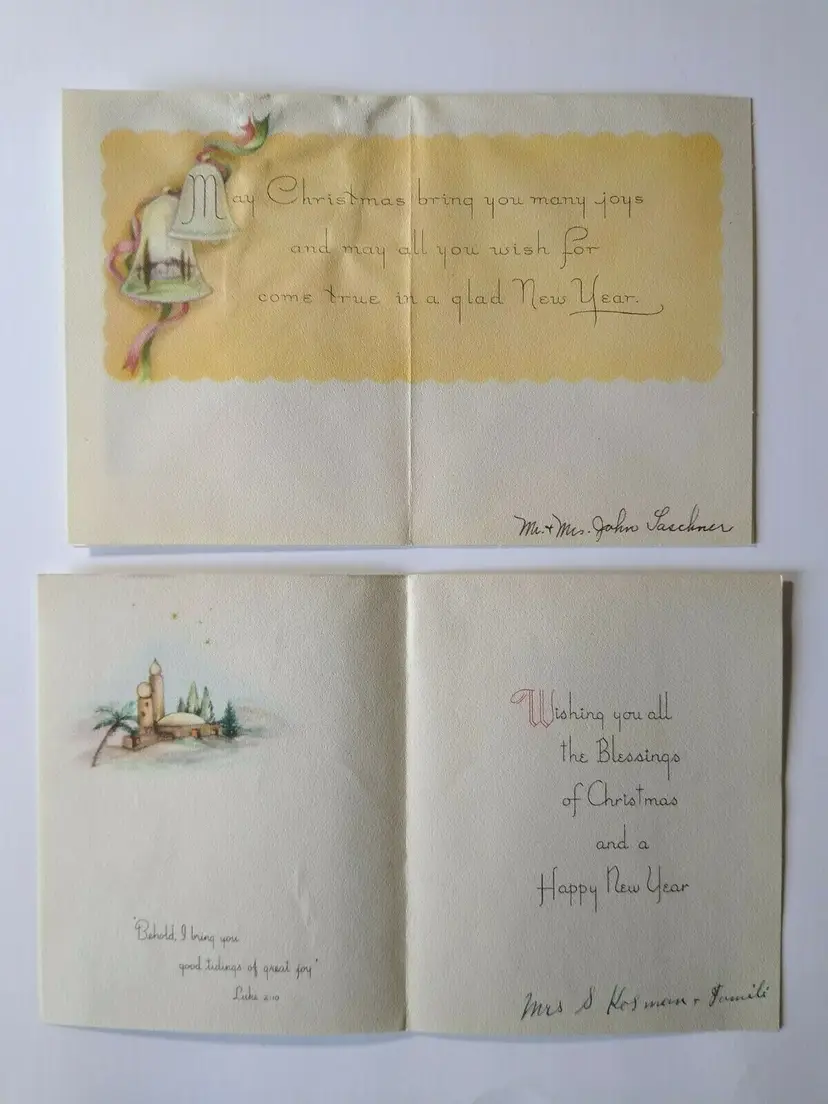 May Christmas bring you many joys
and may all you wish for
come true in a glad New Year.
Mr. + Mrs. John Saschner
Wishing you all
the Blessings
of Christmas
and a
Happy New Year
"Behold, I bring you
good tidings of great joy"
Luke 2:10
Mrs S Kosman + Famili